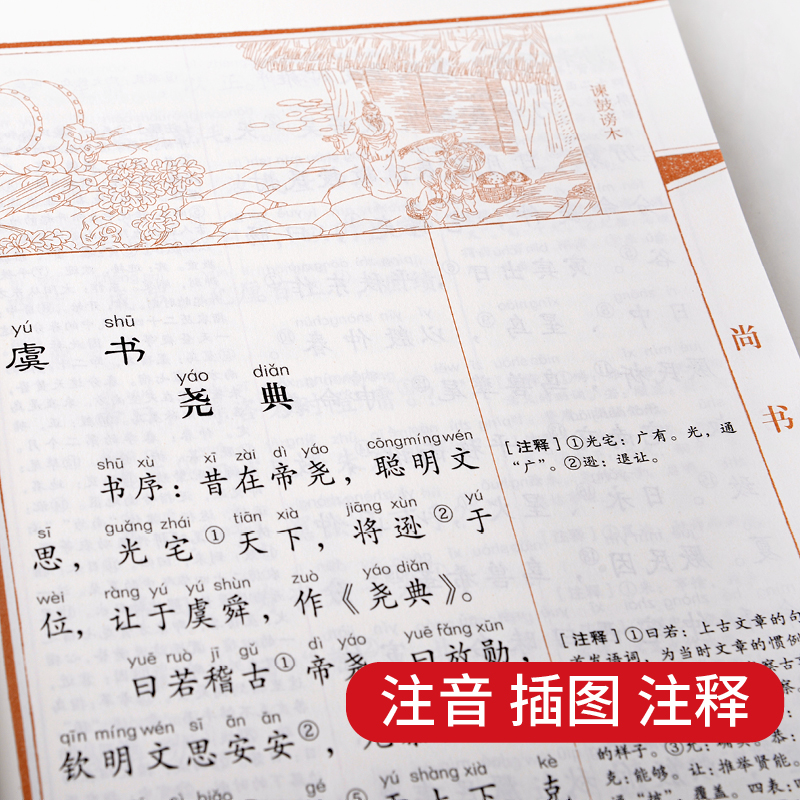 谏鼓谤木
尚书
yú shū
虞书
yáo diǎn
尧典
shū xù xī zài dì yáo cōngmíng wén
书序：昔在帝尧，聪明文
sī guǎng zhái tiān xià jiāng xùn yú
思，光宅①天下，将逊②于
wèi ràng yú yú shùn zuò yáo diǎn
位，让于虞舜，作《尧典》。
yuē ruò jī gǔ dì yáo yuē fàng xūn
曰若稽古①帝尧，曰放勋，
qīn míng wén sī ān ān
钦明文思安安②，允
gé yú shàng xià kè
⑤于上下。克
[注释]①光宅：广有。光，通
“广”。②逊：退让。
[注释]①曰若：上古文章的句
首发语词，为当时文章的惯例
的样子。③允：确实。恭：
克：能够。让：推举贤能。
覆盖。四表：四
注音 插图 注释